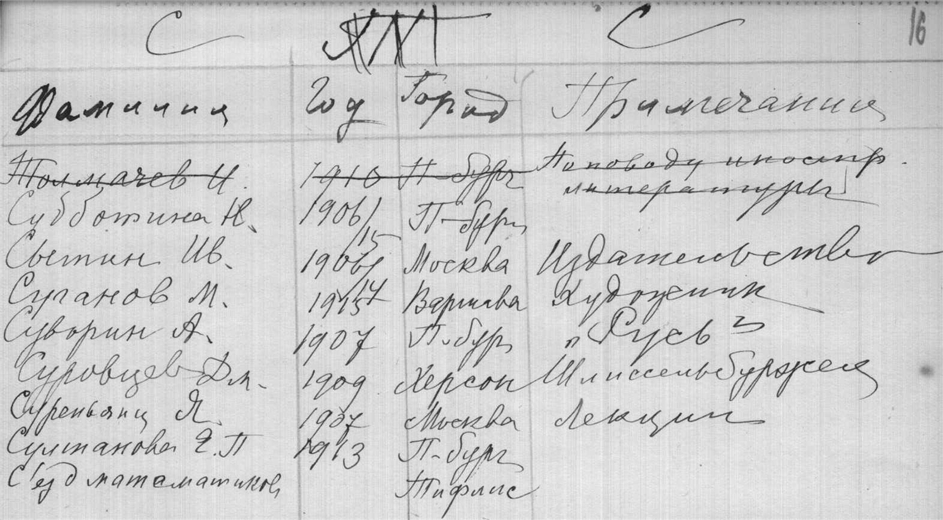 С XXI С 16
Фамилия Год Город Примечания
Толмачев И. 1910 П-бург По поводу иностр.
литературы
Субботина Н. 1906/ П-бург
Сытин Ив. 1906/15 Москва Издательство
Суганов М. 1915/14 Варшава Художник
Суворин А. 1907 П-бург „Русь"
Суровцев Дм. 1909 Херсон Шлиссельбуржец
Суреньянц Я. 1907 Москва Лекции
Султанова Е.П 1913 П-бург
С'езд математиков Тифлис